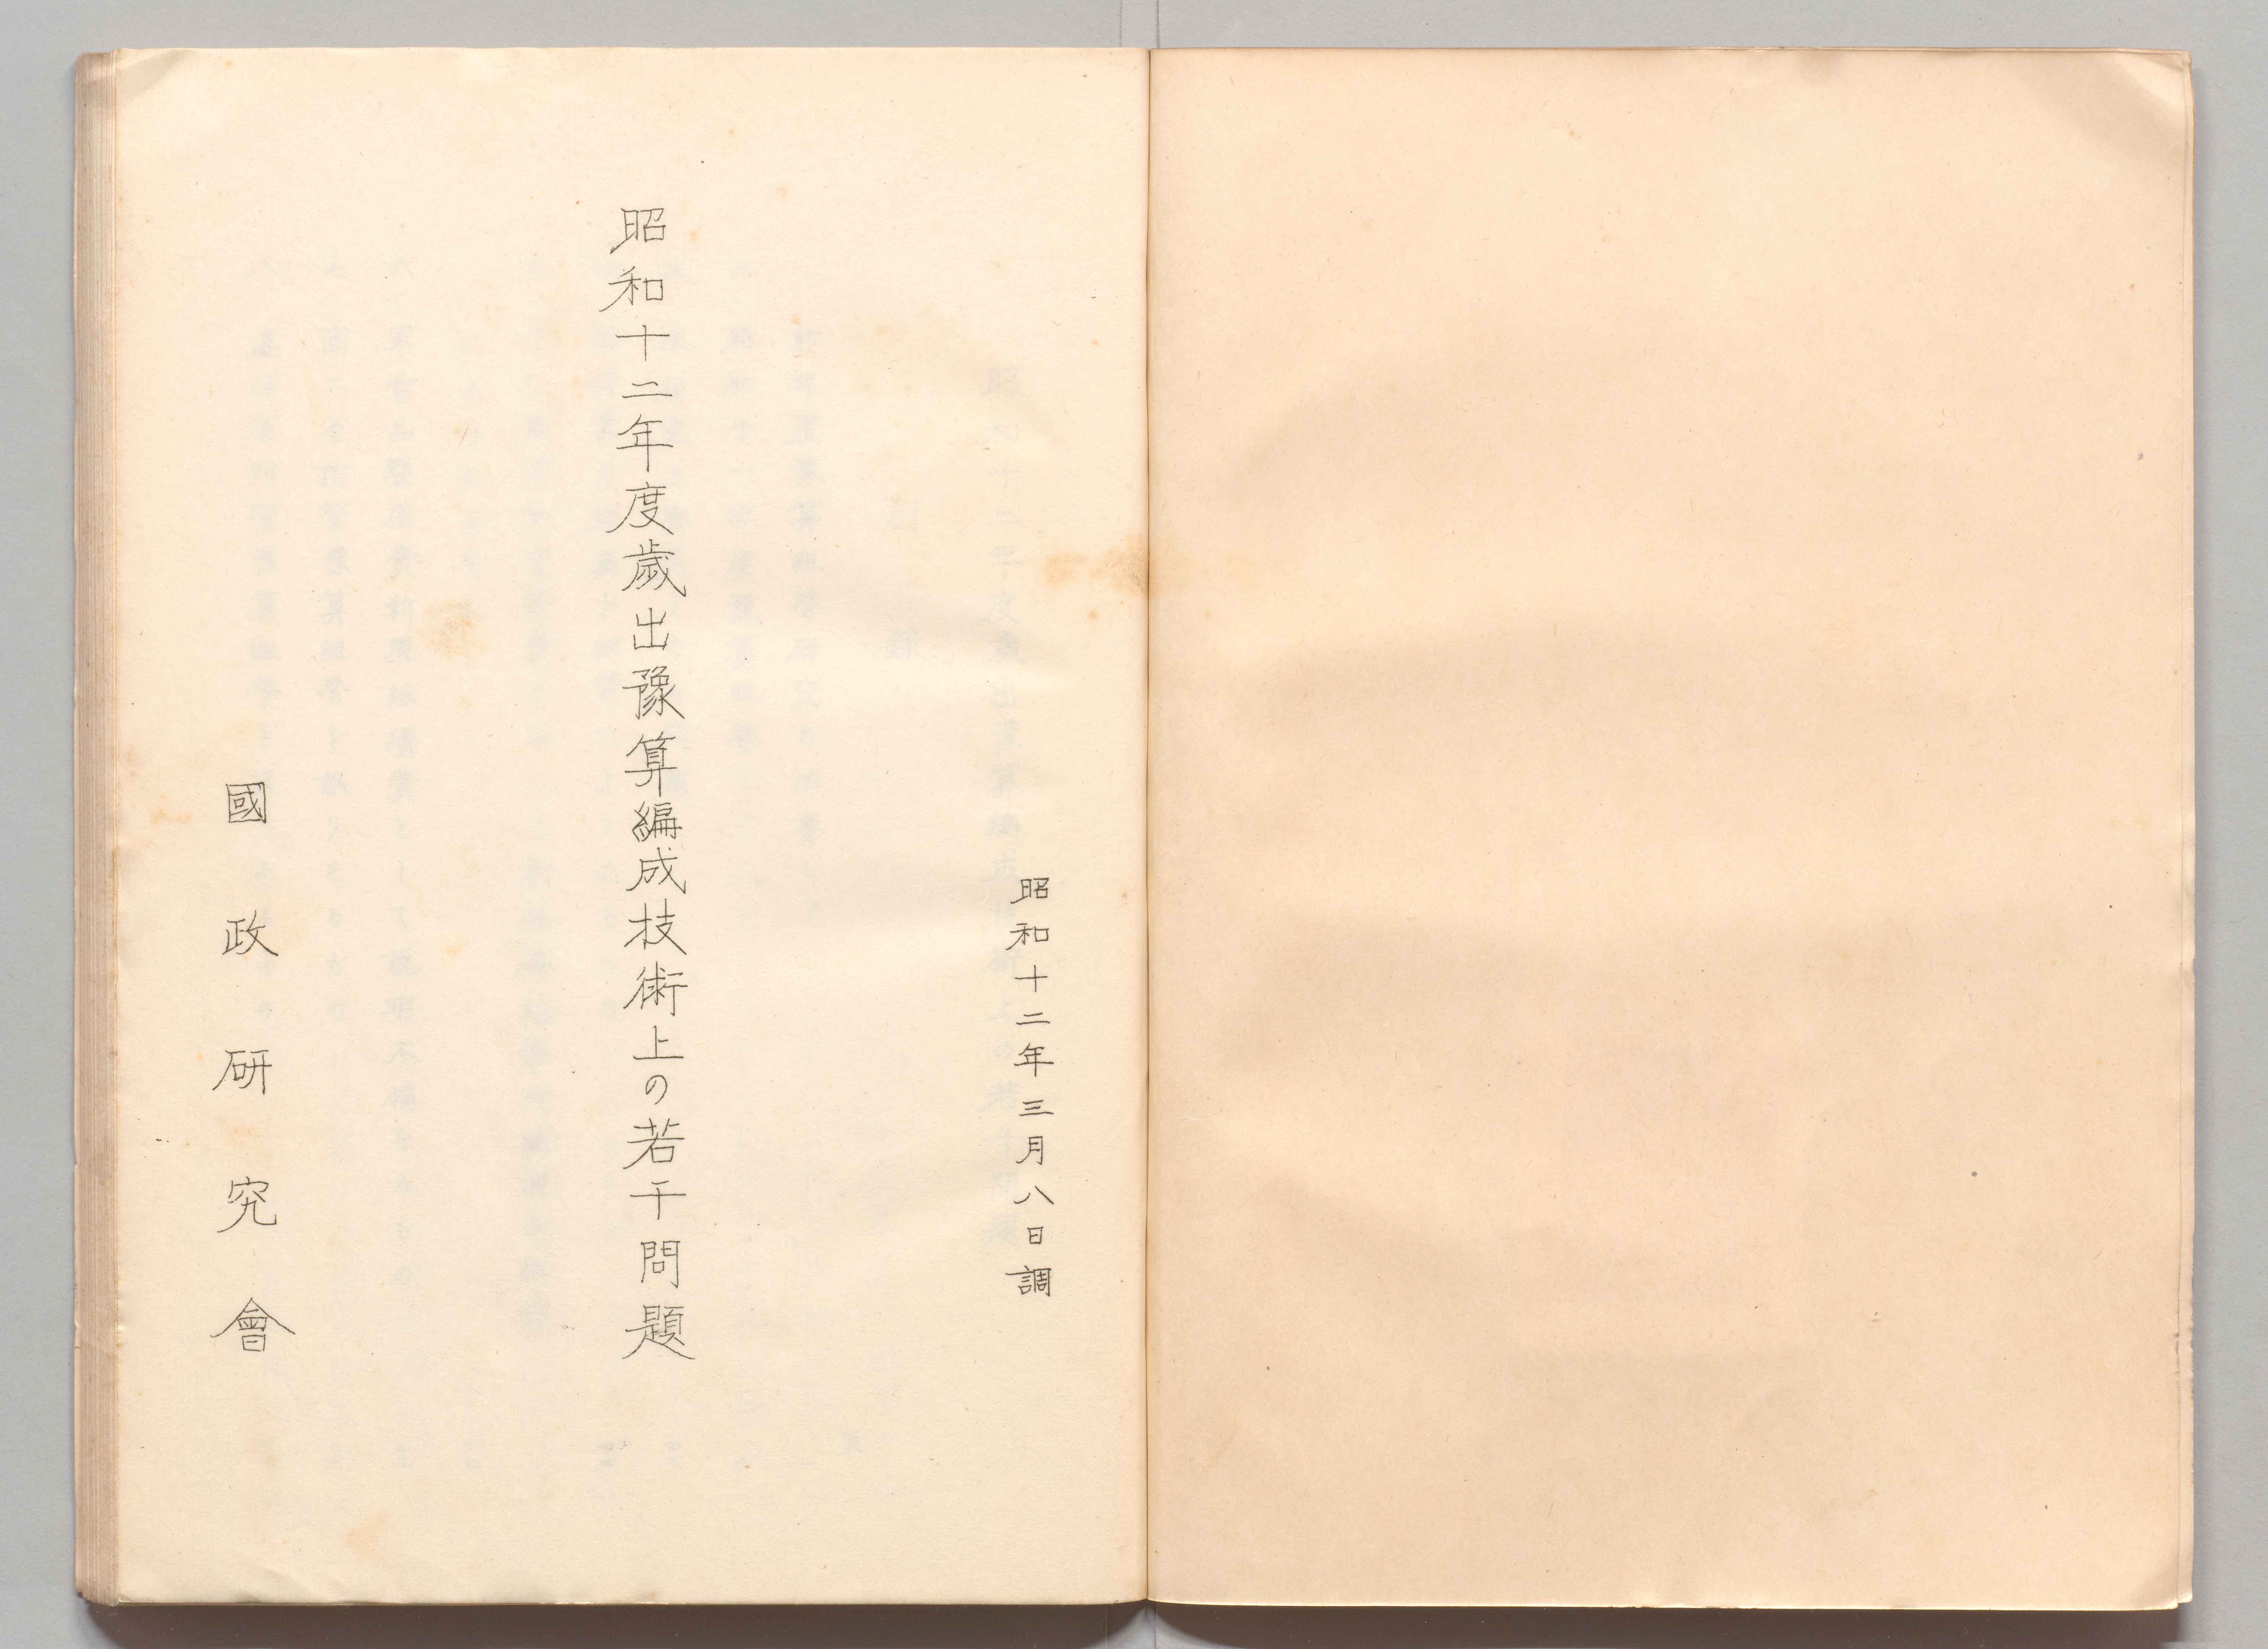 昭和十二年三月八日調
昭和十二年度歲出豫算編成技術上の若干問題
國政研究會